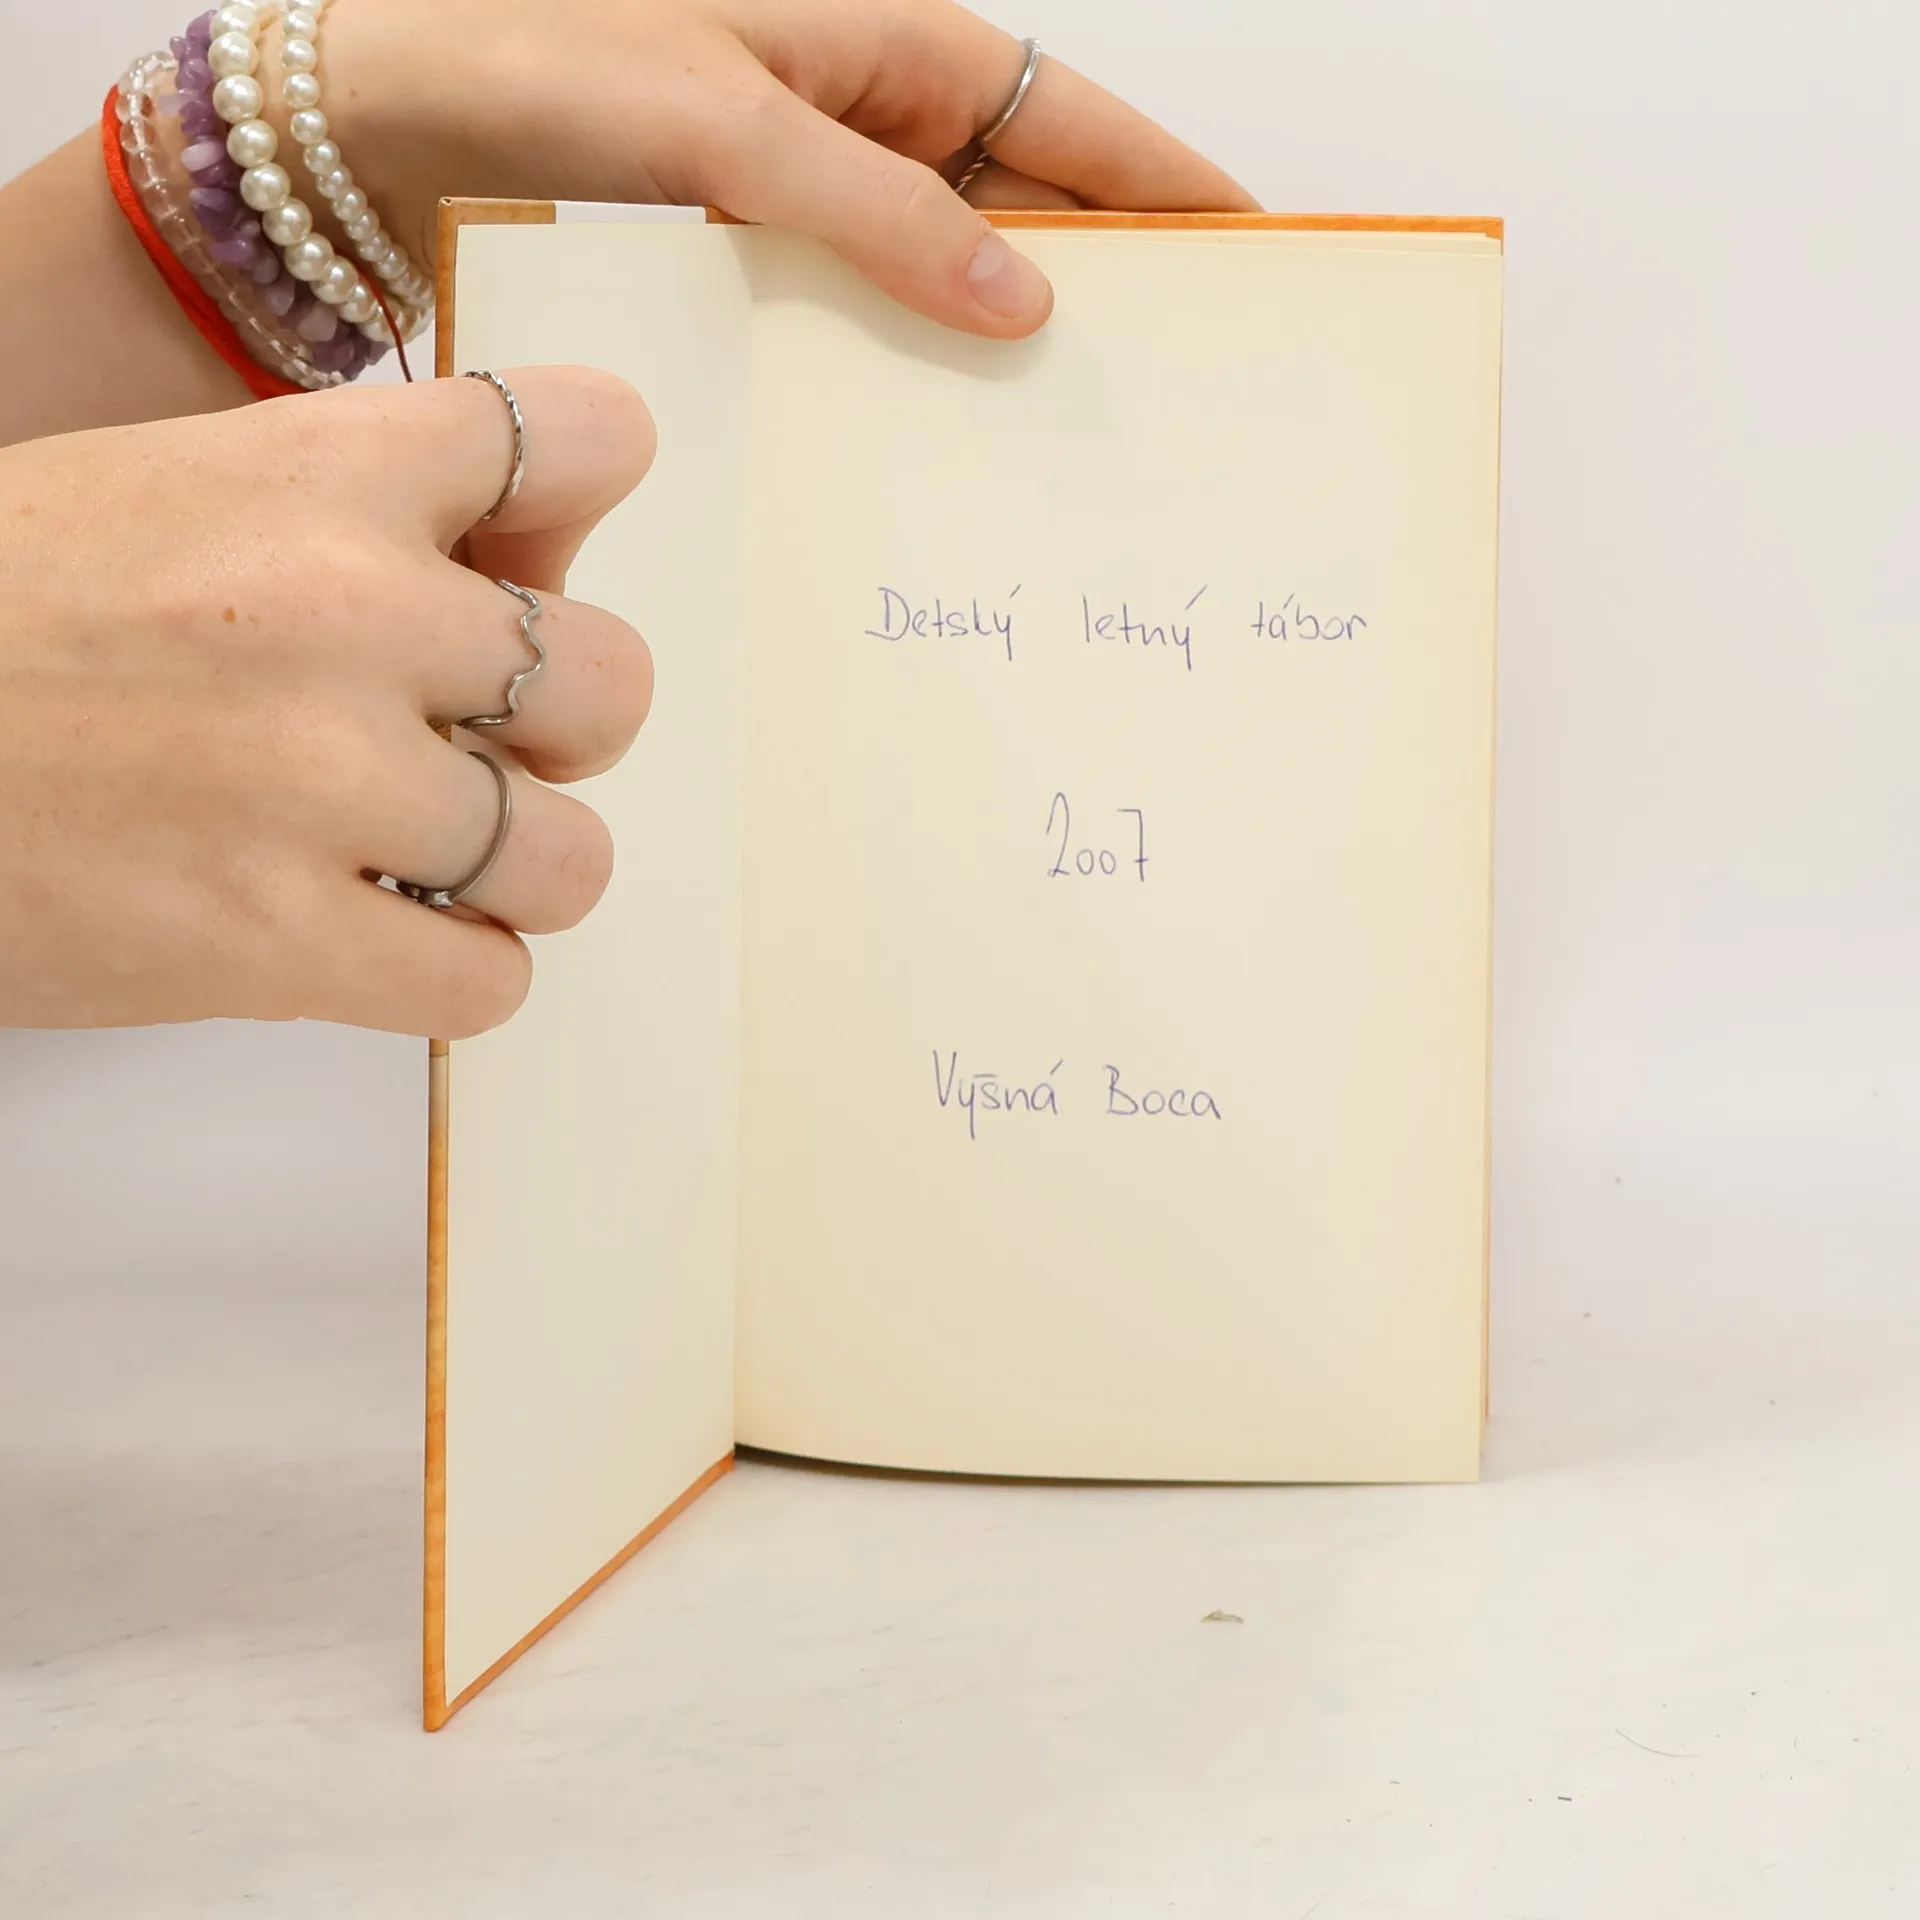 Detský letný tábor
2007
Vyšná Boca